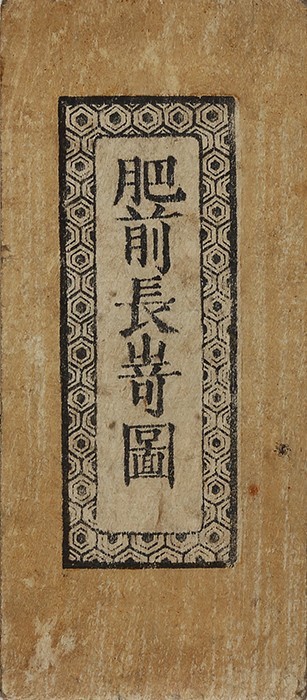 肥前長嵜圖